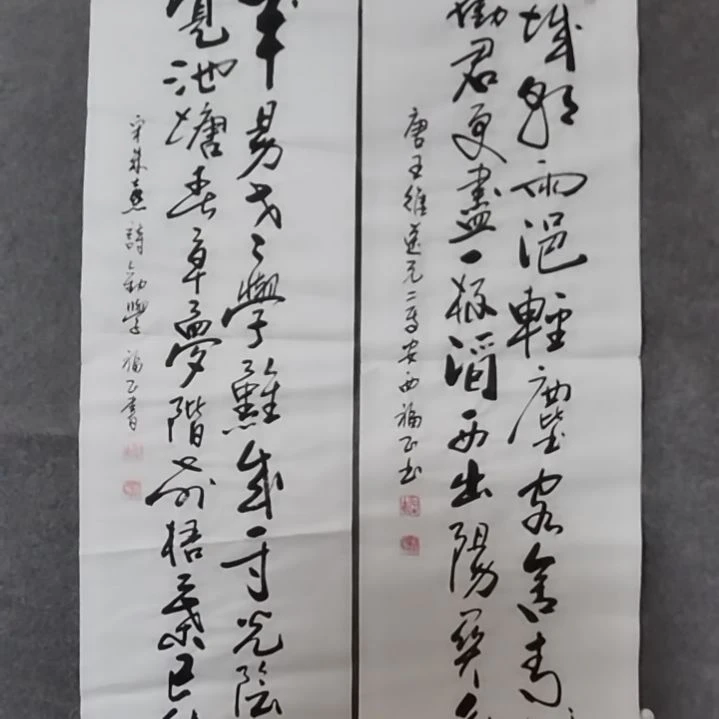 城朝雨浥輕塵客舍青
勸君更盡一杯酒西出陽關
唐王維送元二使安西福正书
年易老學難成一寸光陰
覺池塘春草夢階前梧葉已
宋朱熹詩勸學福正書